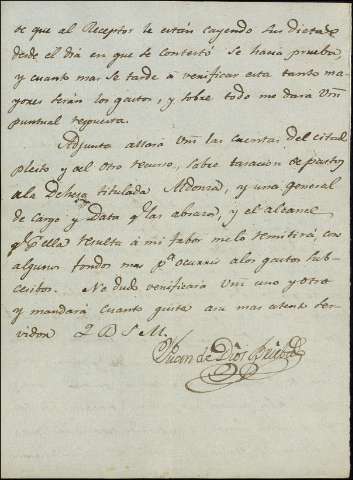 se que al Receptor le están cayendo sus Dietas
desde el dia en que se contextó se hacia prueba,
y cuanto mas se tarde à verificar esta tanto ma-
yores serán los gastos, y sobre todo me dara Vm
puntual respuesta.
Adjunta allara Vm las cuentas del citado
pleito y del otro recurso, sobre tasacion de pastos
a la Dehesa titulada Aldonsa, y una general
de Cargo y Data q.e las abraza, y el alcance
q.e p.r ella resulta à mi fabor me lo remitirá, con
algunos fondos mas p.a ocurrir alos gastos sub-
cesibos. No dudo verificará Vm uno y otro
y mandará cuanto guste asu mas atento ser-
vidor Q B S M.
Juan de Dios